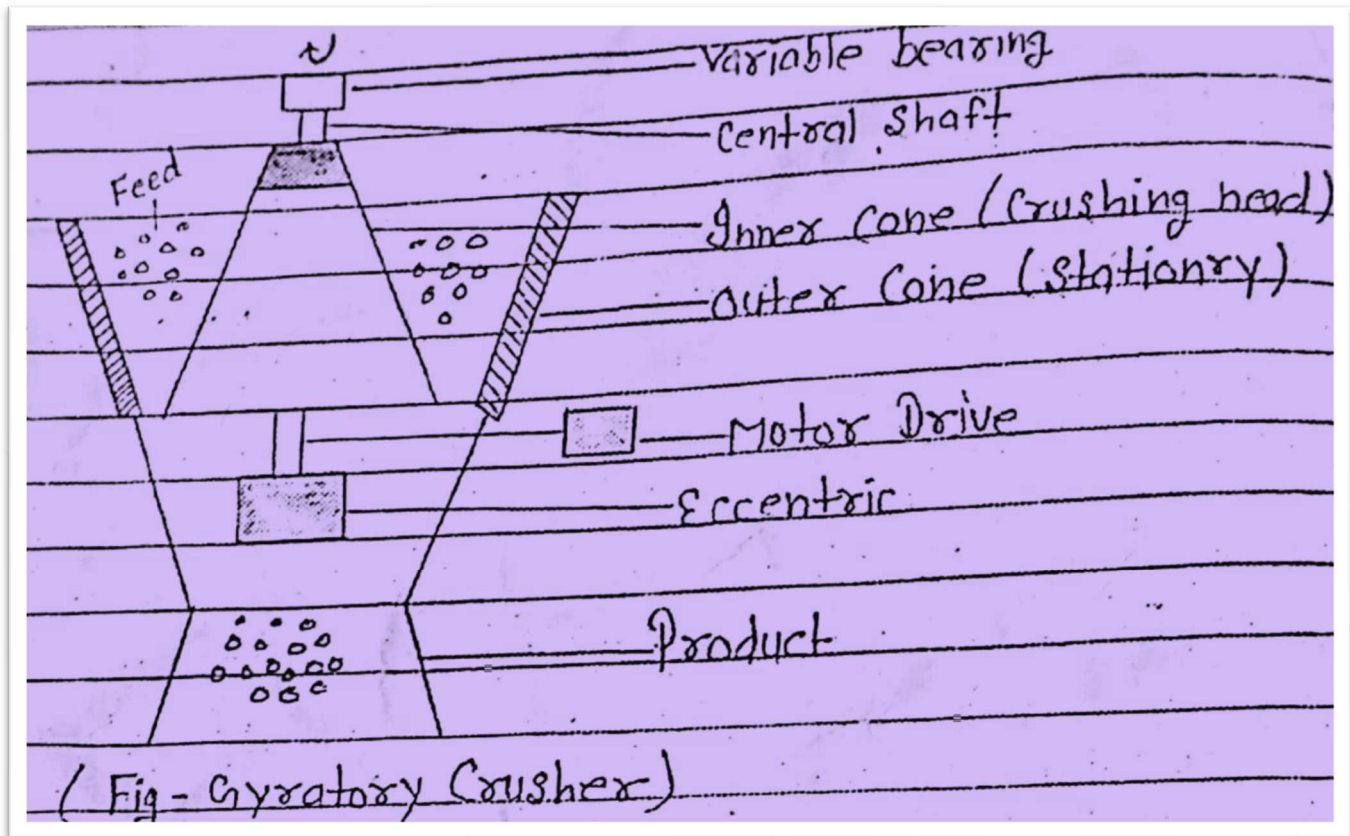 Variable bearing
Central Shaft
Feed
Inner Cone (Crushing head)
Outer Cone (Stationry)
Motor Drive
Eccentric
Product
(Fig - Gyratory Crusher)